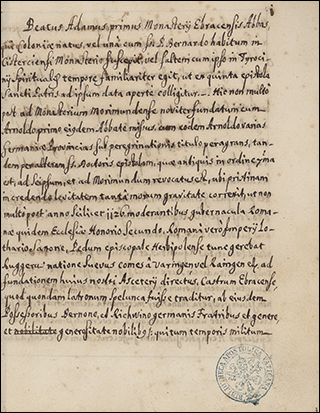 Beatus Adamus primus Monasterij Ebracensis Abbas,
que Coloniæ natus, vel una cum Sto P. Bernardo habitum in
Cisterciensi Monasterio suscepit, vel saltem cum ipso in Tyroci-
nij Spiritualis tempore familiariter egit, ut ex quinta epistola
Sancti Patris ad ipsum data aperte colligitur. Hic non multo
post ad Monasterium Morimundense noviter fundatum cum
Arnoldo primo eiusdem Abbate missus, cum eodem Arnoldo varias
Germaniæ Provincias sub peregrinationis titulo peragrans, tan-
dem per alteram Sti Doctoris epistolam, quæ antiquis in ordine
est, ad Seipsum, et ad Morimundum revocatus est, ubi pristinam
in credendo levitatem tanta morum gravitate correxit, ut non
multo post anno Scilicet 1126 moderantibus gubernacula Roma-
næ quidem Ecclesiæ Honorio Secundo, Romani vero Imperij Lo-
thario Saxone, Pedum episcopale Herbipolense tunc gerebat
Ruggerus natione Suevus comes à Varingen vel Raingen &c, ad
fundationem huius nostri Asceterij directus, Castrum Ebracense,
quod quondam latronum spelunca fuisse traditur, ab eiusdem
Possessoribus Bernone, et Richwino germanis Fratribus et genere,
et nobilitate generositate nobilibus: qui tum temporis militum